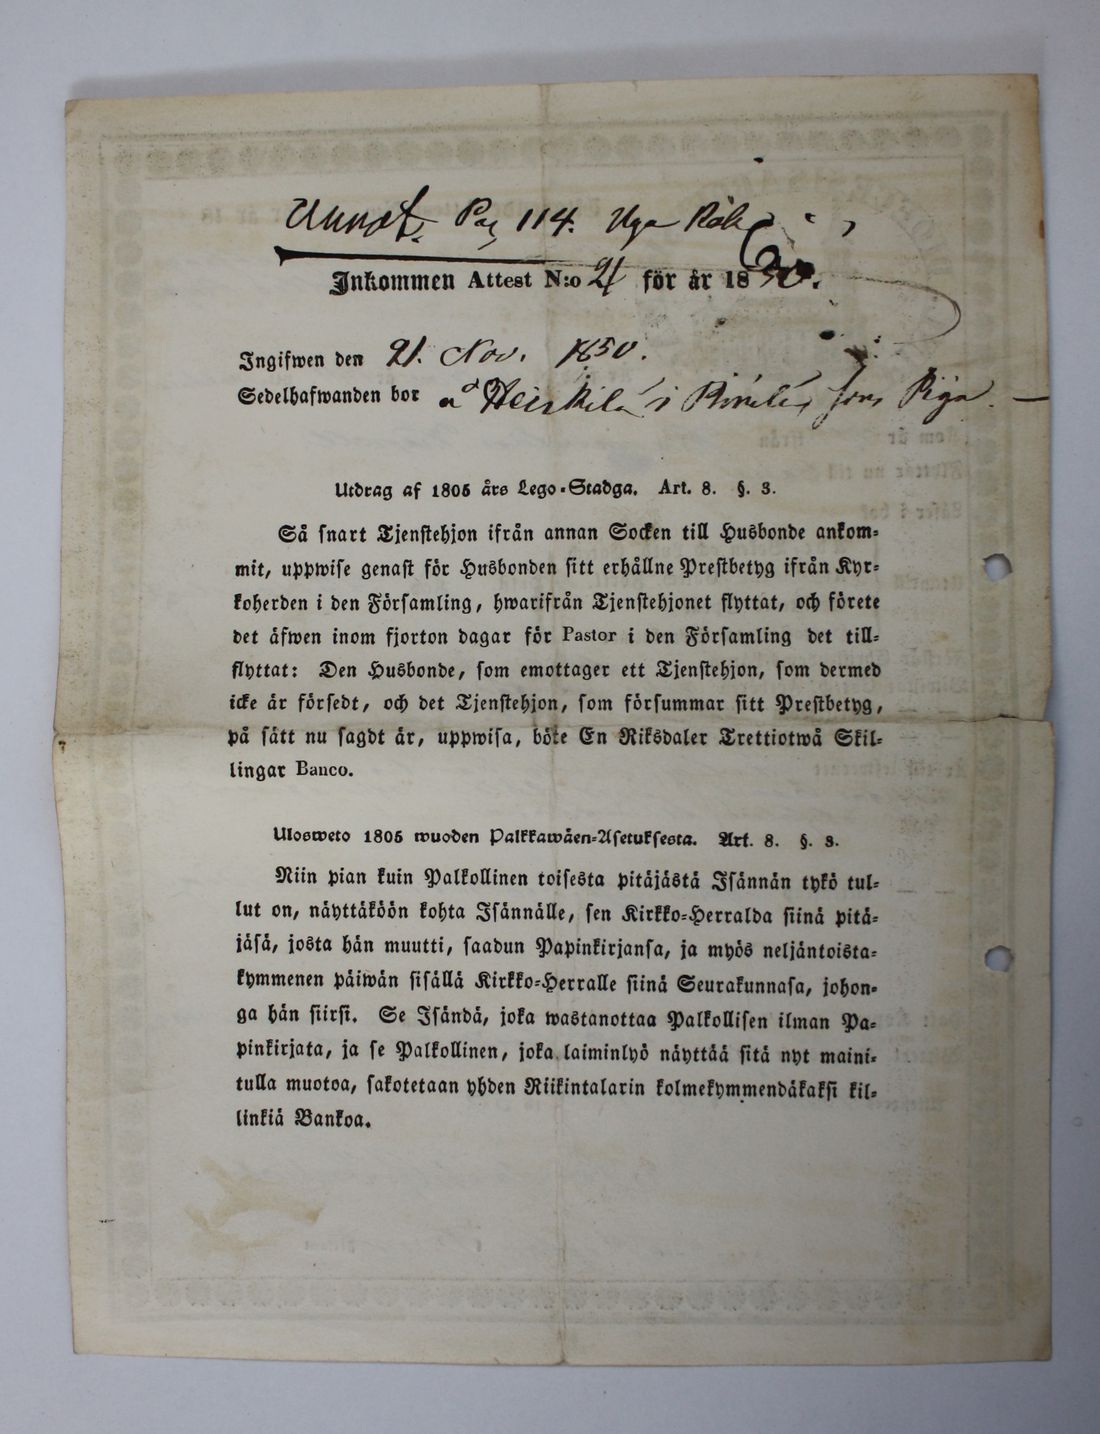 Pag 114. Nya
Inkommen Attest N:o 21 för år 1850.
Ingifwen den 21. Nov. 1850.
Sedelhafwanden bor å Heikkilä i
Utdrag af 1805 års Lego-Stadga. Art. 8. §. 3.
Så snart Tjenstehjon ifrån annan Socken till Husbonde ankom=
mit, uppwise genast för Husbonden sitt erhållne Prestbetyg ifrån Kyr=
koherden i den Församling, hwarifrån Tjenstehjonet flyttat, och förete
det äfwen inom fjorton dagar för Pastor i den Församling det till=
flyttat: Den Husbonde, som emottager ett Tjenstehjon, som dermed
icke är försedt, och det Tjenstehjon, som försummar sitt Prestbetyg,
på sätt nu sagdt är, uppwisa, böte En Riksdaler Trettiotwå Skil=
lingar Banco.
Ulosweto 1805 wuoden Palkkawäen=Asetuksesta. Art. 8. §. 3.
Niin pian kuin Palkollinen toisesta pitäjästä Isännän tykö tul=
lut on, näyttäköön kohta Isännälle, sen Kirkko=Herralda siinä pitä=
jäsä, josta hän muutti, saadun Papinkirjansa, ja myös neljäntoista=
kymmenen päiwän sisällä Kirkko=Herralle siinä Seurakunnasa, johon=
ga hän siirsi. Se Isändä, joka wastanottaa Palkollisen ilman Pa=
pinkirjata, ja se Palkollinen, joka laiminlyö näyttää sitä nyt maini=
tulla muotoa, sakotetaan yhden Riikintalarin kolmekymmendäkaksi kil=
linkiä Bankoa.